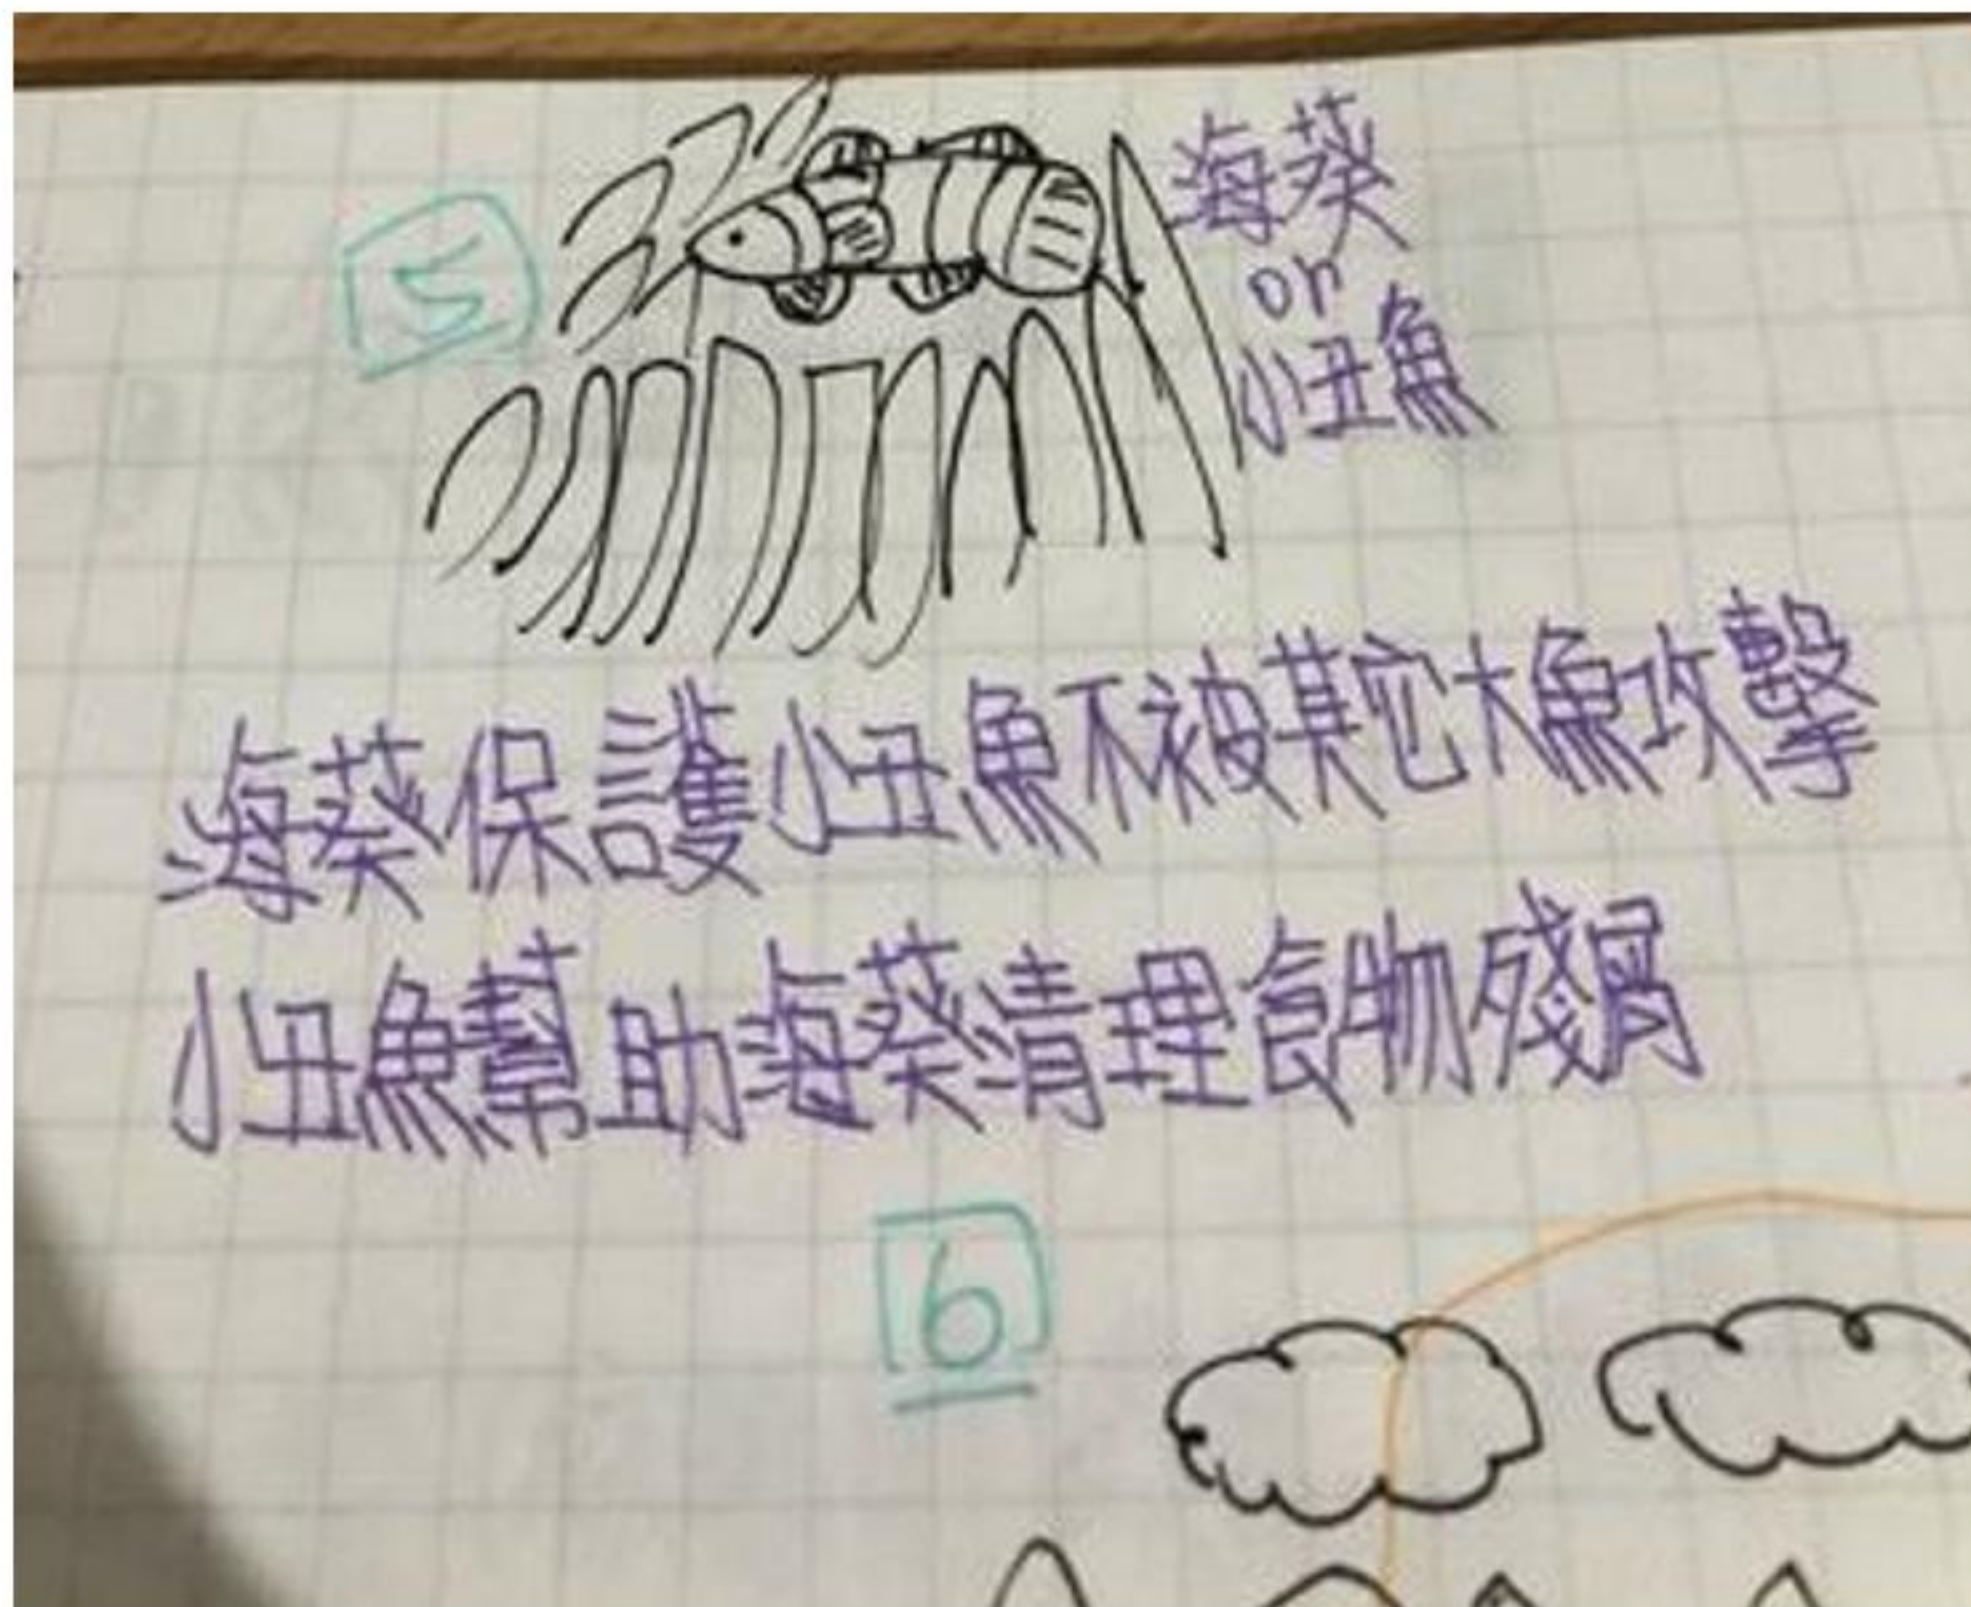 5
海葵
or
小丑魚
海葵保護小丑魚不被其它大魚攻擊
小丑魚幫助海葵清理食物殘屑
6